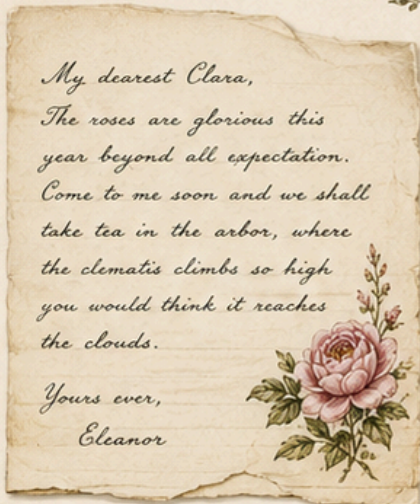 My dearest Clara,
The roses are glorious this
year beyond all expectation.
Come to me soon and we shall
take tea in the arbor, where
the clematis climbs so high
you would think it reaches
the clouds.
Yours ever,
Eleanor